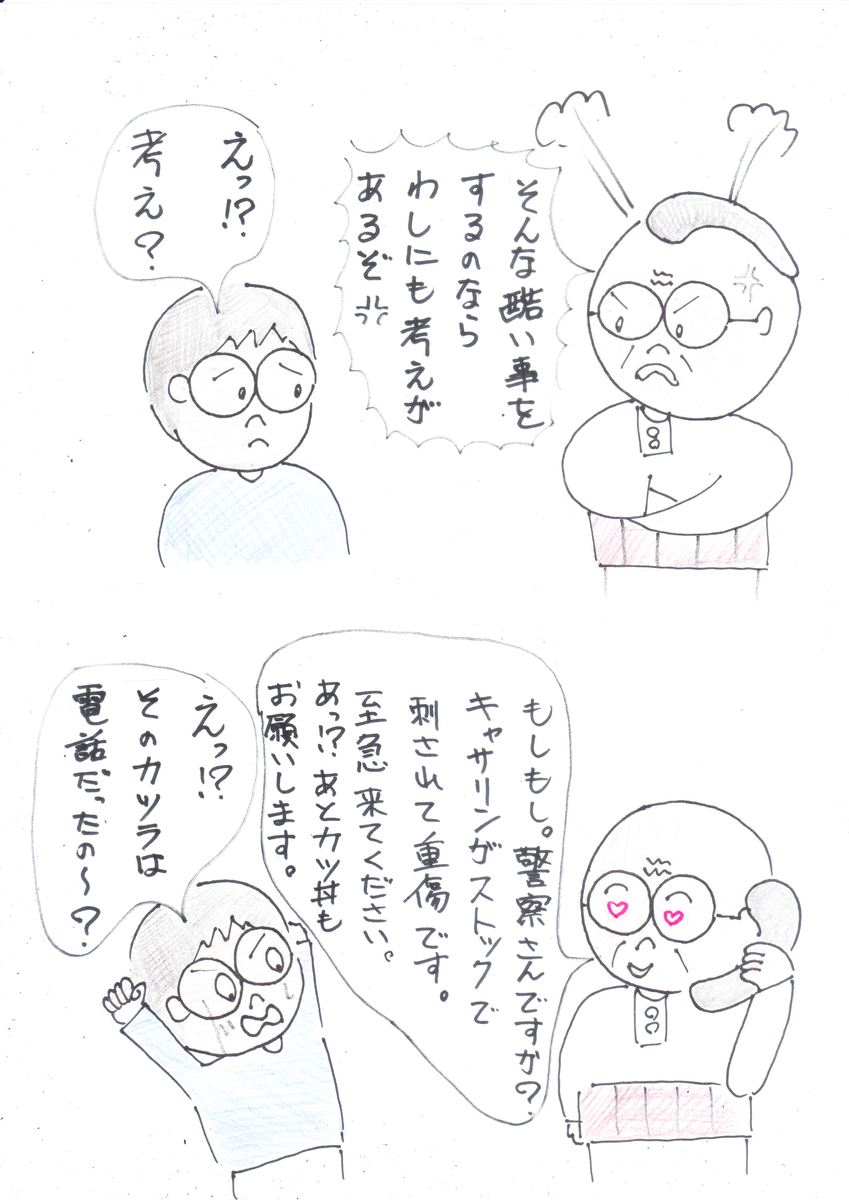 そんな酷い事を
するのなら
わしにも考えが
あるぞ💢
えっ!?
考え?
もしもし。警察さんですか?
キャサリンがストックで
刺されて重傷です。
至急来てください。
あっ!?あとカツ丼も
お願いします。
えっ!?
そのカツラは
電話だったの〜?
GC